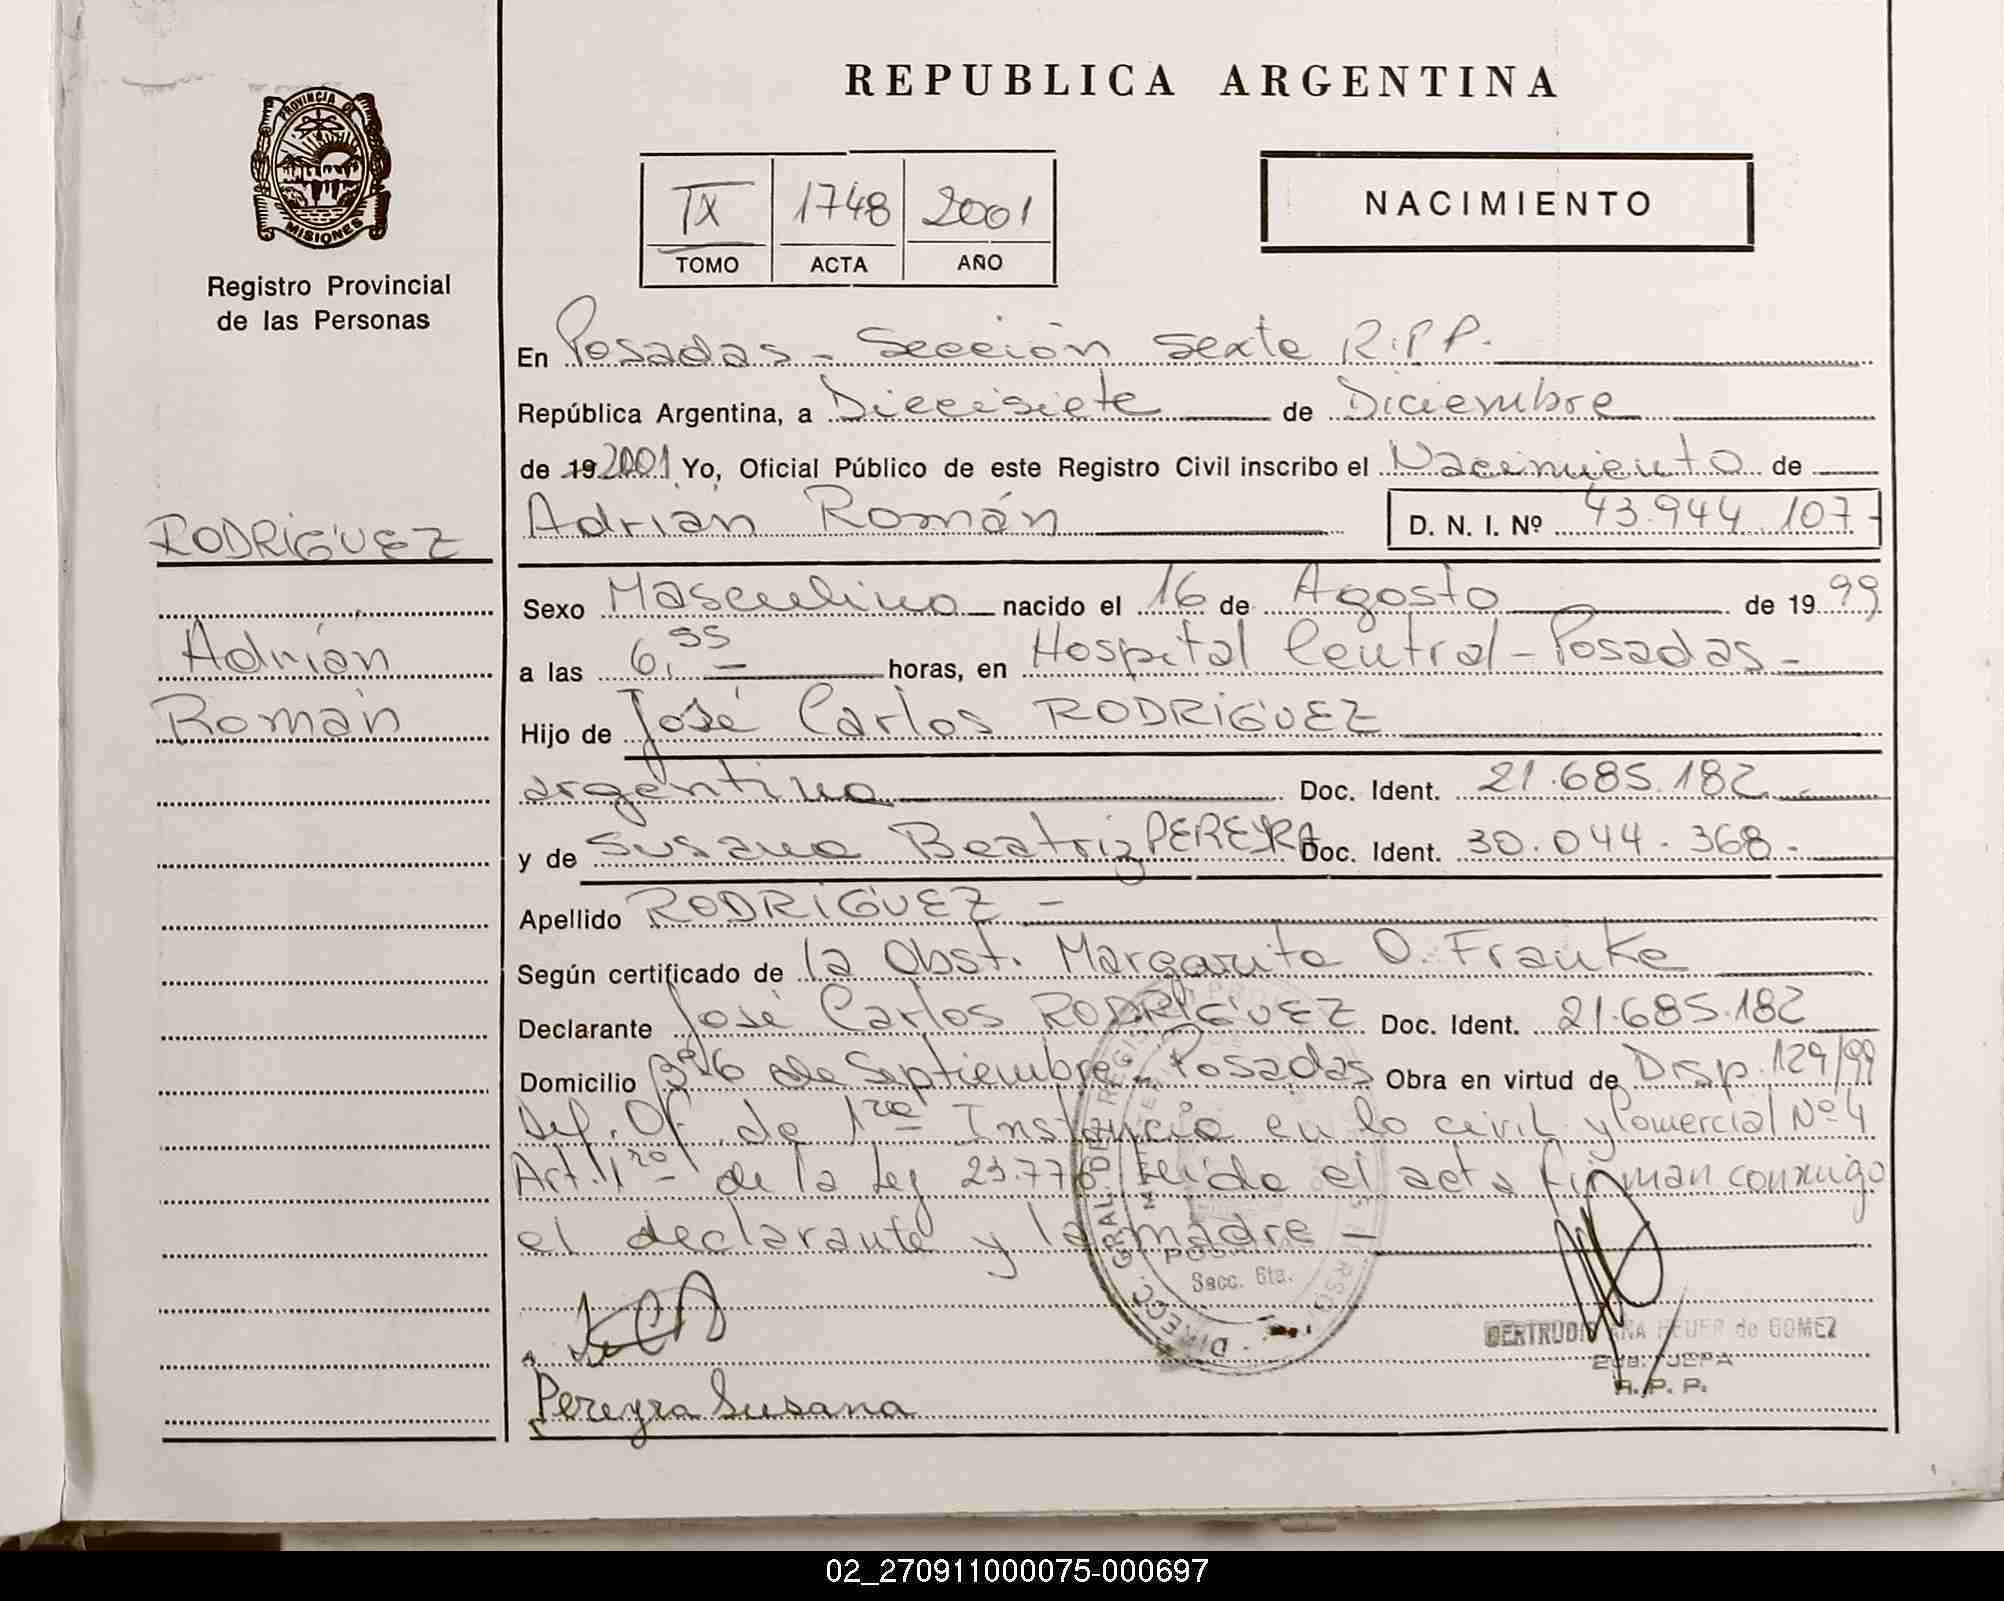 REPUBLICA ARGENTINA
PROVINCIA DE MISIONES
Registro Provincial
de las Personas
IX 1748 2001
TOMO ACTA AÑO
NACIMIENTO
En Posadas - Sección Sexta R.P.P.
República Argentina, a Diecisiete de Diciembre
de 19 2001 Yo, Oficial Público de este Registro Civil inscribo el Nacimiento de
Adrián Román D. N. I. Nº 43.944.107-
RODRÍGUEZ
Adrián
Román
Sexo Masculino nacido el 16 de Agosto de 1999
a las 6,55 horas, en Hospital Central - Posadas -
Hijo de José Carlos RODRÍGUEZ
argentino Doc. Ident. 21.685.182 -
y de Susana Beatriz PEREYRA Doc. Ident. 30.044.368 -
Apellido RODRÍGUEZ -
Según certificado de la Obst. Margarita O. Franke
Declarante José Carlos RODRÍGUEZ Doc. Ident. 21.685.182
Domicilio Bº 26 de Septiembre - Posadas Obra en virtud de Disp. 129/99
Def. Of. de 1ra Instancia en lo civil y Comercial Nº 4
Art. 1ro de la Ley 23.776 leída el acta firman conmigo
el declarante y la madre -
DIRECC. GRAL. DE REGIS
Secc. 6ta.
GERTRUDIS ANA HEUER de GOMEZ
R. P. P.
Pereyra Susana
02_270911000075-000697